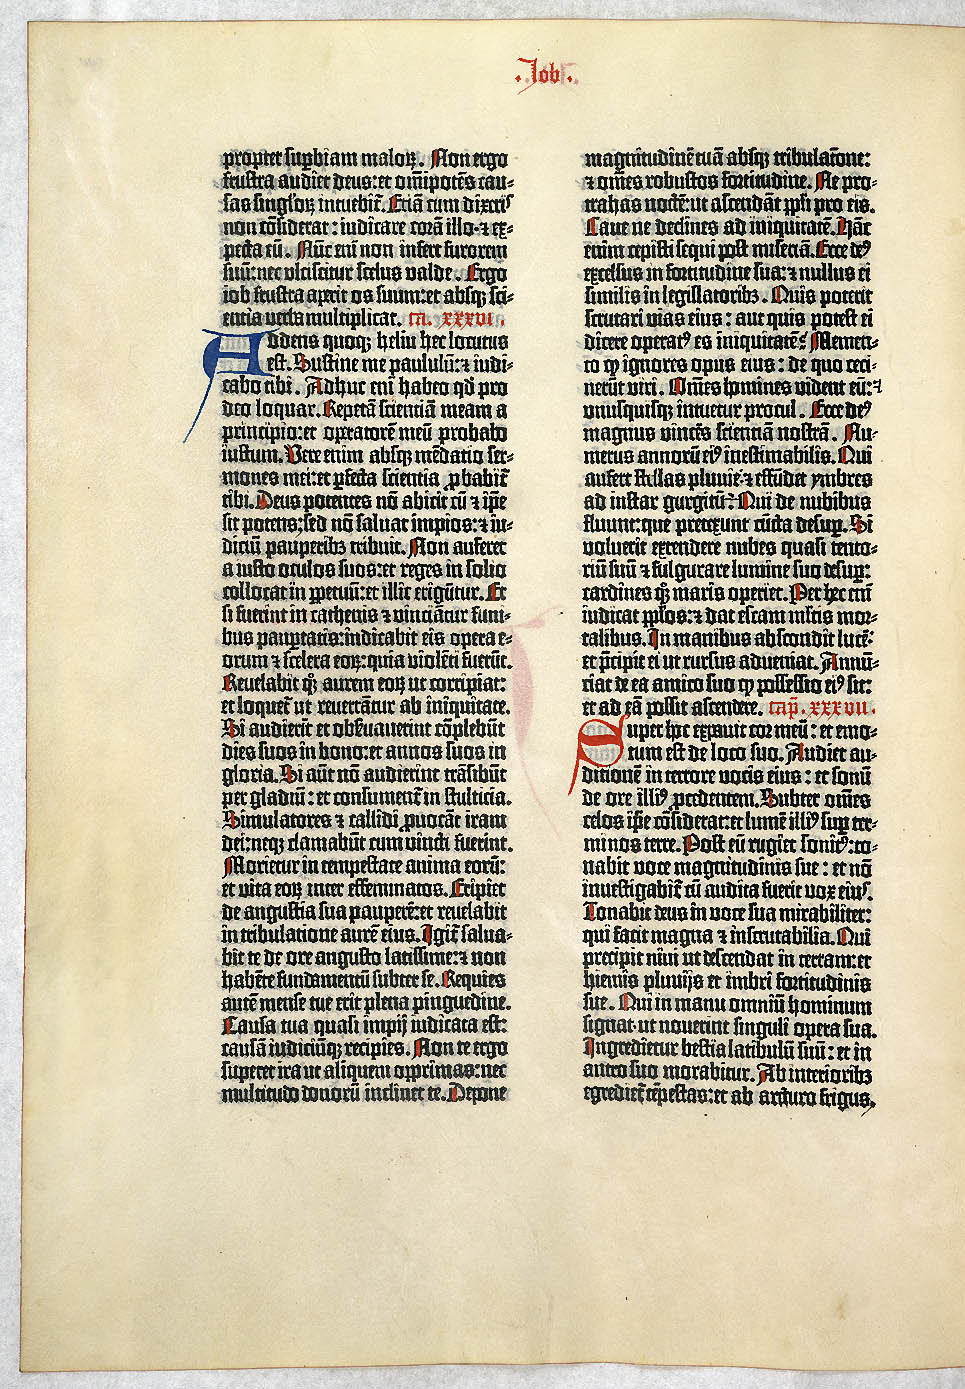 .Job.
propter supbiam maloꝝ. Non ergo
frustra audiet deus: et om̄ipotēs cau-
sas singłoꝝ intuebit̄. Etiā cum dixeris
non cōsiderat: iudicare corā illo· ⁊ ex-
pecta eū. Nūc em̄ non infert furorem
suū: nec ulciscitur scelus valde. Ergo
iob frustra aperit os suum: et absqꝫ sci-
entia verba multiplicat. ca. xxxvi.
Addens quoqꝫ heliu hec locutus
est. Sustine me paululū: ⁊ indi-
cabo tibi. Adhuc em̄ habeo qd̄ pro
deo loquar. Repetā scientiā meam a
principio: et operatorē meū probabo
iustum. Vere enim absqꝫ mēdatio ser-
mones mei: et pfecta scientia ꝓbabit̄
tibi. Deus potentes nō abicit cū ⁊ ip̄e
sit potens: sed nō saluat impios: ⁊ iu-
diciū pauperibꝫ tribuit. Non auferet
a iusto oculos suos: et reges in solio
collocat in ꝑpetuū: et illic eriguntur. Et
si fuerint in cathenis ⁊ vinciātur funi-
bus paupertatis: indicabit eis opera e-
orum ⁊ scelera eoꝝ: quia violēti fuerūt.
Reuelabit qꝫ aurem eoꝝ ut corripiat:
et loquet̄ ut reuertātur ab iniquitate.
Si audierīt et obseruauerint cōplebūt
dies suos in bono: et annos suos in
gloria. Si aūt nō audierint trāsibūt
per gladiū: et consument̄ in stulticia.
Simulatores ⁊ callidi ꝓuocāt iram
dei: neqꝫ clamabūt cum vincti fuerint.
Morietur in tempestate anima eorū:
et vita eoꝝ inter effeminatos. Eripiet
de angustia sua pauperē: et reuelabit
in tribulatione aurē eius. Igit̄ salua-
bit te de ore angusto latissime: ⁊ non
habēte fundamentū subter se. Requies
autē mense tue erit plena pinguedine.
Causa tua quasi impij iudicata est:
causā iudiciūqꝫ recipies. Non te ergo
superet ira ut aliquem opprimas: nec
multitudo donorū inclinet te. Depone
magnitudinē tuā absqꝫ tribulatōne:
⁊ om̄es robustos fortitudine. Ne pro-
trahas noctē: ut ascendāt pp̄li pro eis.
Caue ne declines ad iniquitatē. Hāc
enim cepisti sequi post miseriā. Ecce deꝰ
excelsus in fortitudine sua: ⁊ nullus ei
similis in legislatoribꝫ. Quis poterit
scrutari vias eius: aut quis potest ei
dicere operatꝰ es iniquitatē? Memen-
to ꝙ ignores opus eius: de quo ceci-
nerūt viri. Om̄es homines vident eū: ⁊
vnusquisqꝫ intuetur procul. Ecce deꝰ
magnus vincēs scientiā nostrā. Nu-
merus annorū eiꝰ inestimabilis. Qui
aufert stillas pluuie· ⁊ effūdit ymbres
ad instar gurgitū? Qui de nubibus
fluunt: que pretexunt cūcta desuper. Si
voluerit extendere nubes quasi tento-
riū suū ⁊ fulgurare lumine suo desuper:
cardines qꝫ maris operiet. Per hec em̄
iudicat pp̄los: ⁊ dat escam mltis mor-
talibus. In manibus abscondit lucē:
et p̄cipit ei ut rursus adueniat. Annū-
ciat de ea amico suo ꝙ possessio eiꝰ sit:
et ad eā possit ascendere. cap̄. xxxvii.
Super hoc expauit cor meū: et emo-
tum est de loco suo. Audiet au-
ditionē in terrore vocis eius: et sonū
de ore illiꝰ ꝓcedentem. Subter om̄es
celos ip̄e cōsiderat: et lumē illiꝰ super ter-
minos terre. Post eū rugiet sonitꝰ: to-
nabit voce magnitudinis sue: et nō
inuestigabit̄ cū audita fuerit vox eius.
Tonabit deus in voce sua mirabiliter:
qui facit magna ⁊ inscrutabilia. Qui
precipit niui ut descendat in terram: et
hiemis pluuijs et imbri fortitudinis
sue. Qui in manu omniū hominum
signat· ut nouerint singuli opera sua.
Ingredietur bestia latibulū suū: et in
antro suo morabitur. Ab interioribꝫ
egrediet̄ tēpestas: et ab arcturo frigus.